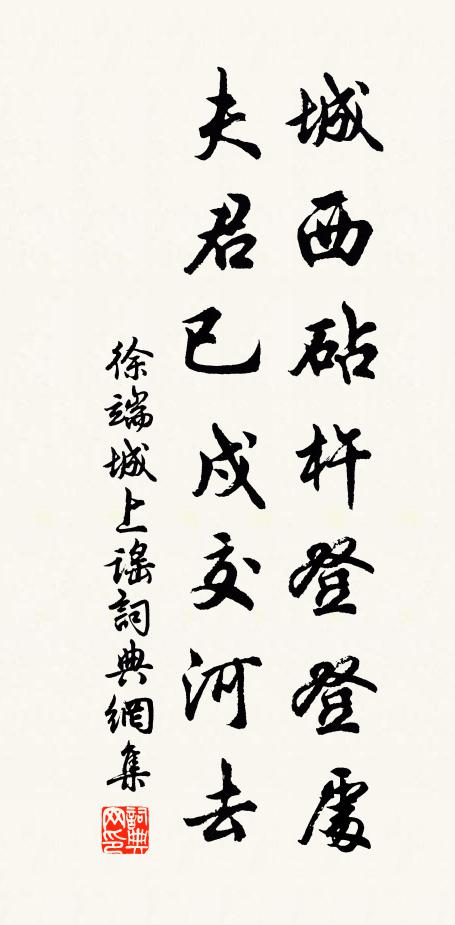 城西砧杵登登處
夫君已戍交河去
徐端城上謠詞典網集
詞典網印